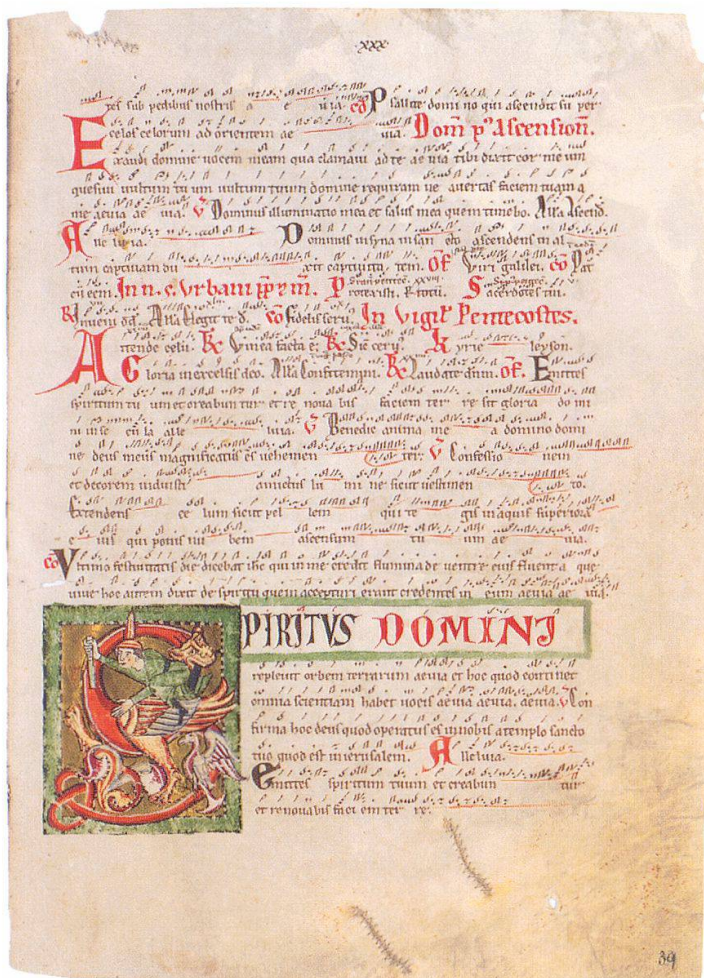 xxx
pedibus nostris a e uia. co Psallite domino qui ascendit super
celos celorum ad orientem ae uia. Dom p' Ascension.
Exaudi domine uocem meam qua clamaui ad te ae uia tibi dixit cor meum
quesiui uultum tuum uultum tuum domine requiram ne auertas faciem tuam a
me aeuia ae uia. V Dominus illuminatio mea et salus mea quem timebo. Alla Ascend.
Alle luia. Dominus insyna in san cto ascendens in al
tum captiuam du xit captiuita tem. Of Viri galilei. co Pat
In n. s. Urbani Protexisti. Sacerdotes tui.
Inueni dd. Alla Elegit te d. co Fidelis seru. In Vigil Pentecostes.
Attende celu. Vinea facta e. Sic ceru. Kyrie leyson.
Gloria in excelsis deo. Alla Confitemini. Laudate dnm. of. Emittes
spiritum tu um et creabun tur et re noua bis faciem ter re sit gloria do mi
ni in se cu la alle luia. V Benedic anima me a domino domi
ne deus meus magnificatus es uehemen ter. V Confessio nem
et decorem induisti amictus lu mi ne sicut uestimen to.
Extendens ce lum sicut pel lem qui te gis in aquis superiora
e ius qui ponis nu bem ascensum tu um ae uia.
co Vltimo festiuitatis die dicebat ihc qui in me credit flumina de uentre eius fluent a que
uiue hoc autem dixit de spiritu quem accepturi erant credentes in eum aeuia ae uia.
SPIRITVS DOMINI
repleuit orbem terrarum aeuia et hoc quod continet
omnia scientiam habet uocis aeuia aeuia. aeuia. V Con
firma hoc deus quod operatus es in nobis a templo sancto
tuo quod est in ierusalem. Alleluia.
Emittes spiritum tuum et creabun tur
et renouabis faci em ter re.
39